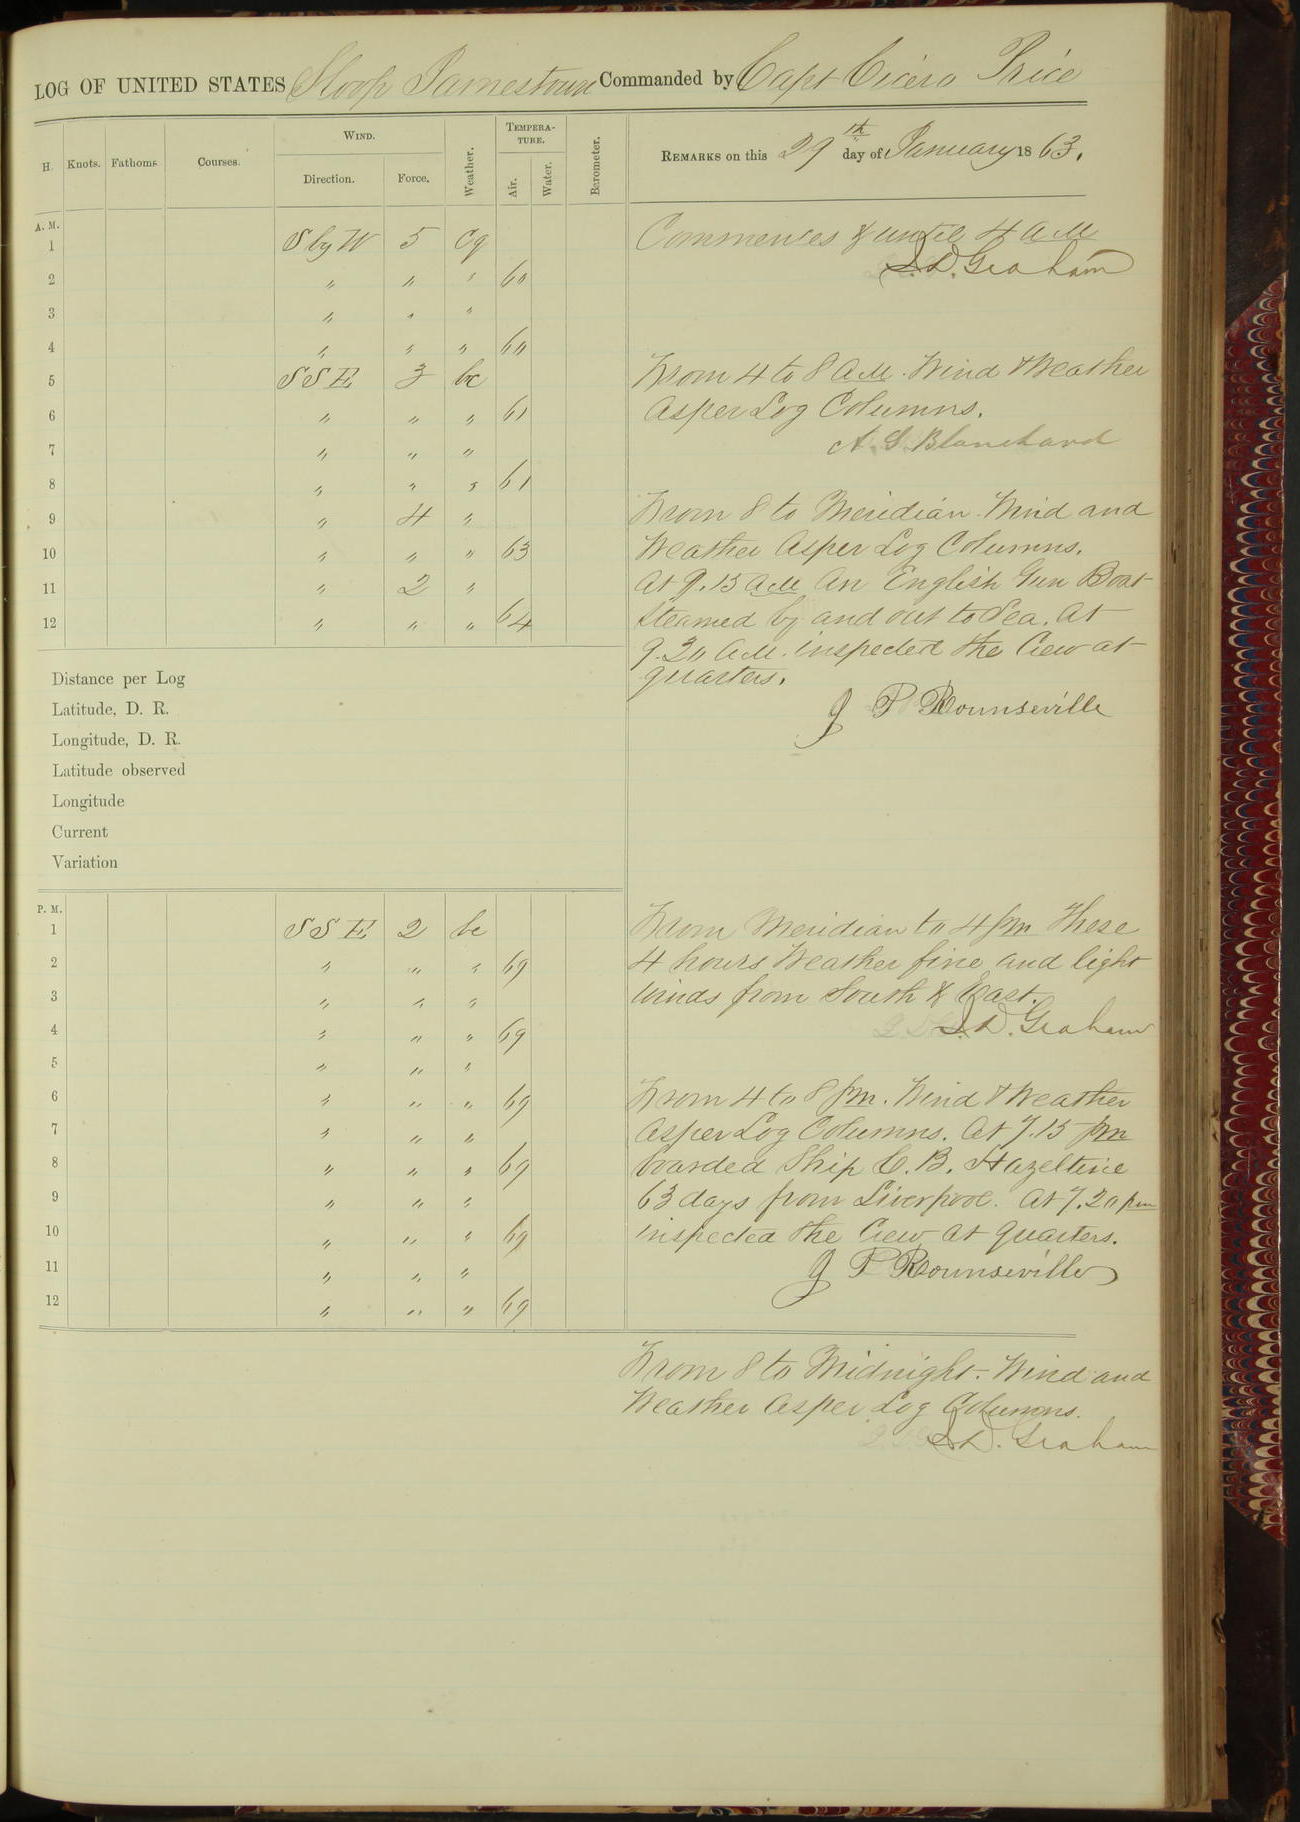 LOG OF UNITED STATES Sloop Jamestown Commanded by Capt Cicero Price
H. Knots. Fathoms. Courses. WIND. Direction. Force. Weather. TEMPERATURE. Air. Water. Barometer. REMARKS on this 29th day of January 1863.
A. M.
1 S by W 5 cq
2 " " " 60
3 " " "
4 " " " 60
5 SSE 3 bc
6 " " " 61
7 " " "
8 " " " 61
9 " 4 "
10 " " " 63
11 " 2 "
12 " " " 64
Commences & until 4 AM
S. D. Graham
From 4 to 8 AM. Wind & Weather
As per Log Columns.
A G Blanchard
From 8 to Meridian. Wind and
Weather As per Log Columns.
At 9.15 AM An English Gun Boat
steamed by and out to Sea. At
9.20 AM. inspected the Crew at
quarters.
J P Rounseville
Distance per Log
Latitude, D. R.
Longitude, D. R.
Latitude observed
Longitude
Current
Variation
P. M.
1 SSE 2 bc
2 " " " 69
3 " " "
4 " " " 69
5 " " "
6 " " " 69
7 " " "
8 " " " 69
9 " " "
10 " " " 69
11 " " "
12 " " " 69
From Meridian to 4 pm These
4 hours Weather fine and light
winds from South & East.
S. D. Graham
From 4 to 8 pm. Wind & Weather
As per Log Columns. At 7.15 pm
boarded Ship C. B. Hazeltine
63 days from Liverpool. At 7.20 pm
inspected the Crew at quarters.
J P Rounseville
From 8 to Midnight. Wind and
Weather As per Log Columns.
S. D. Graham